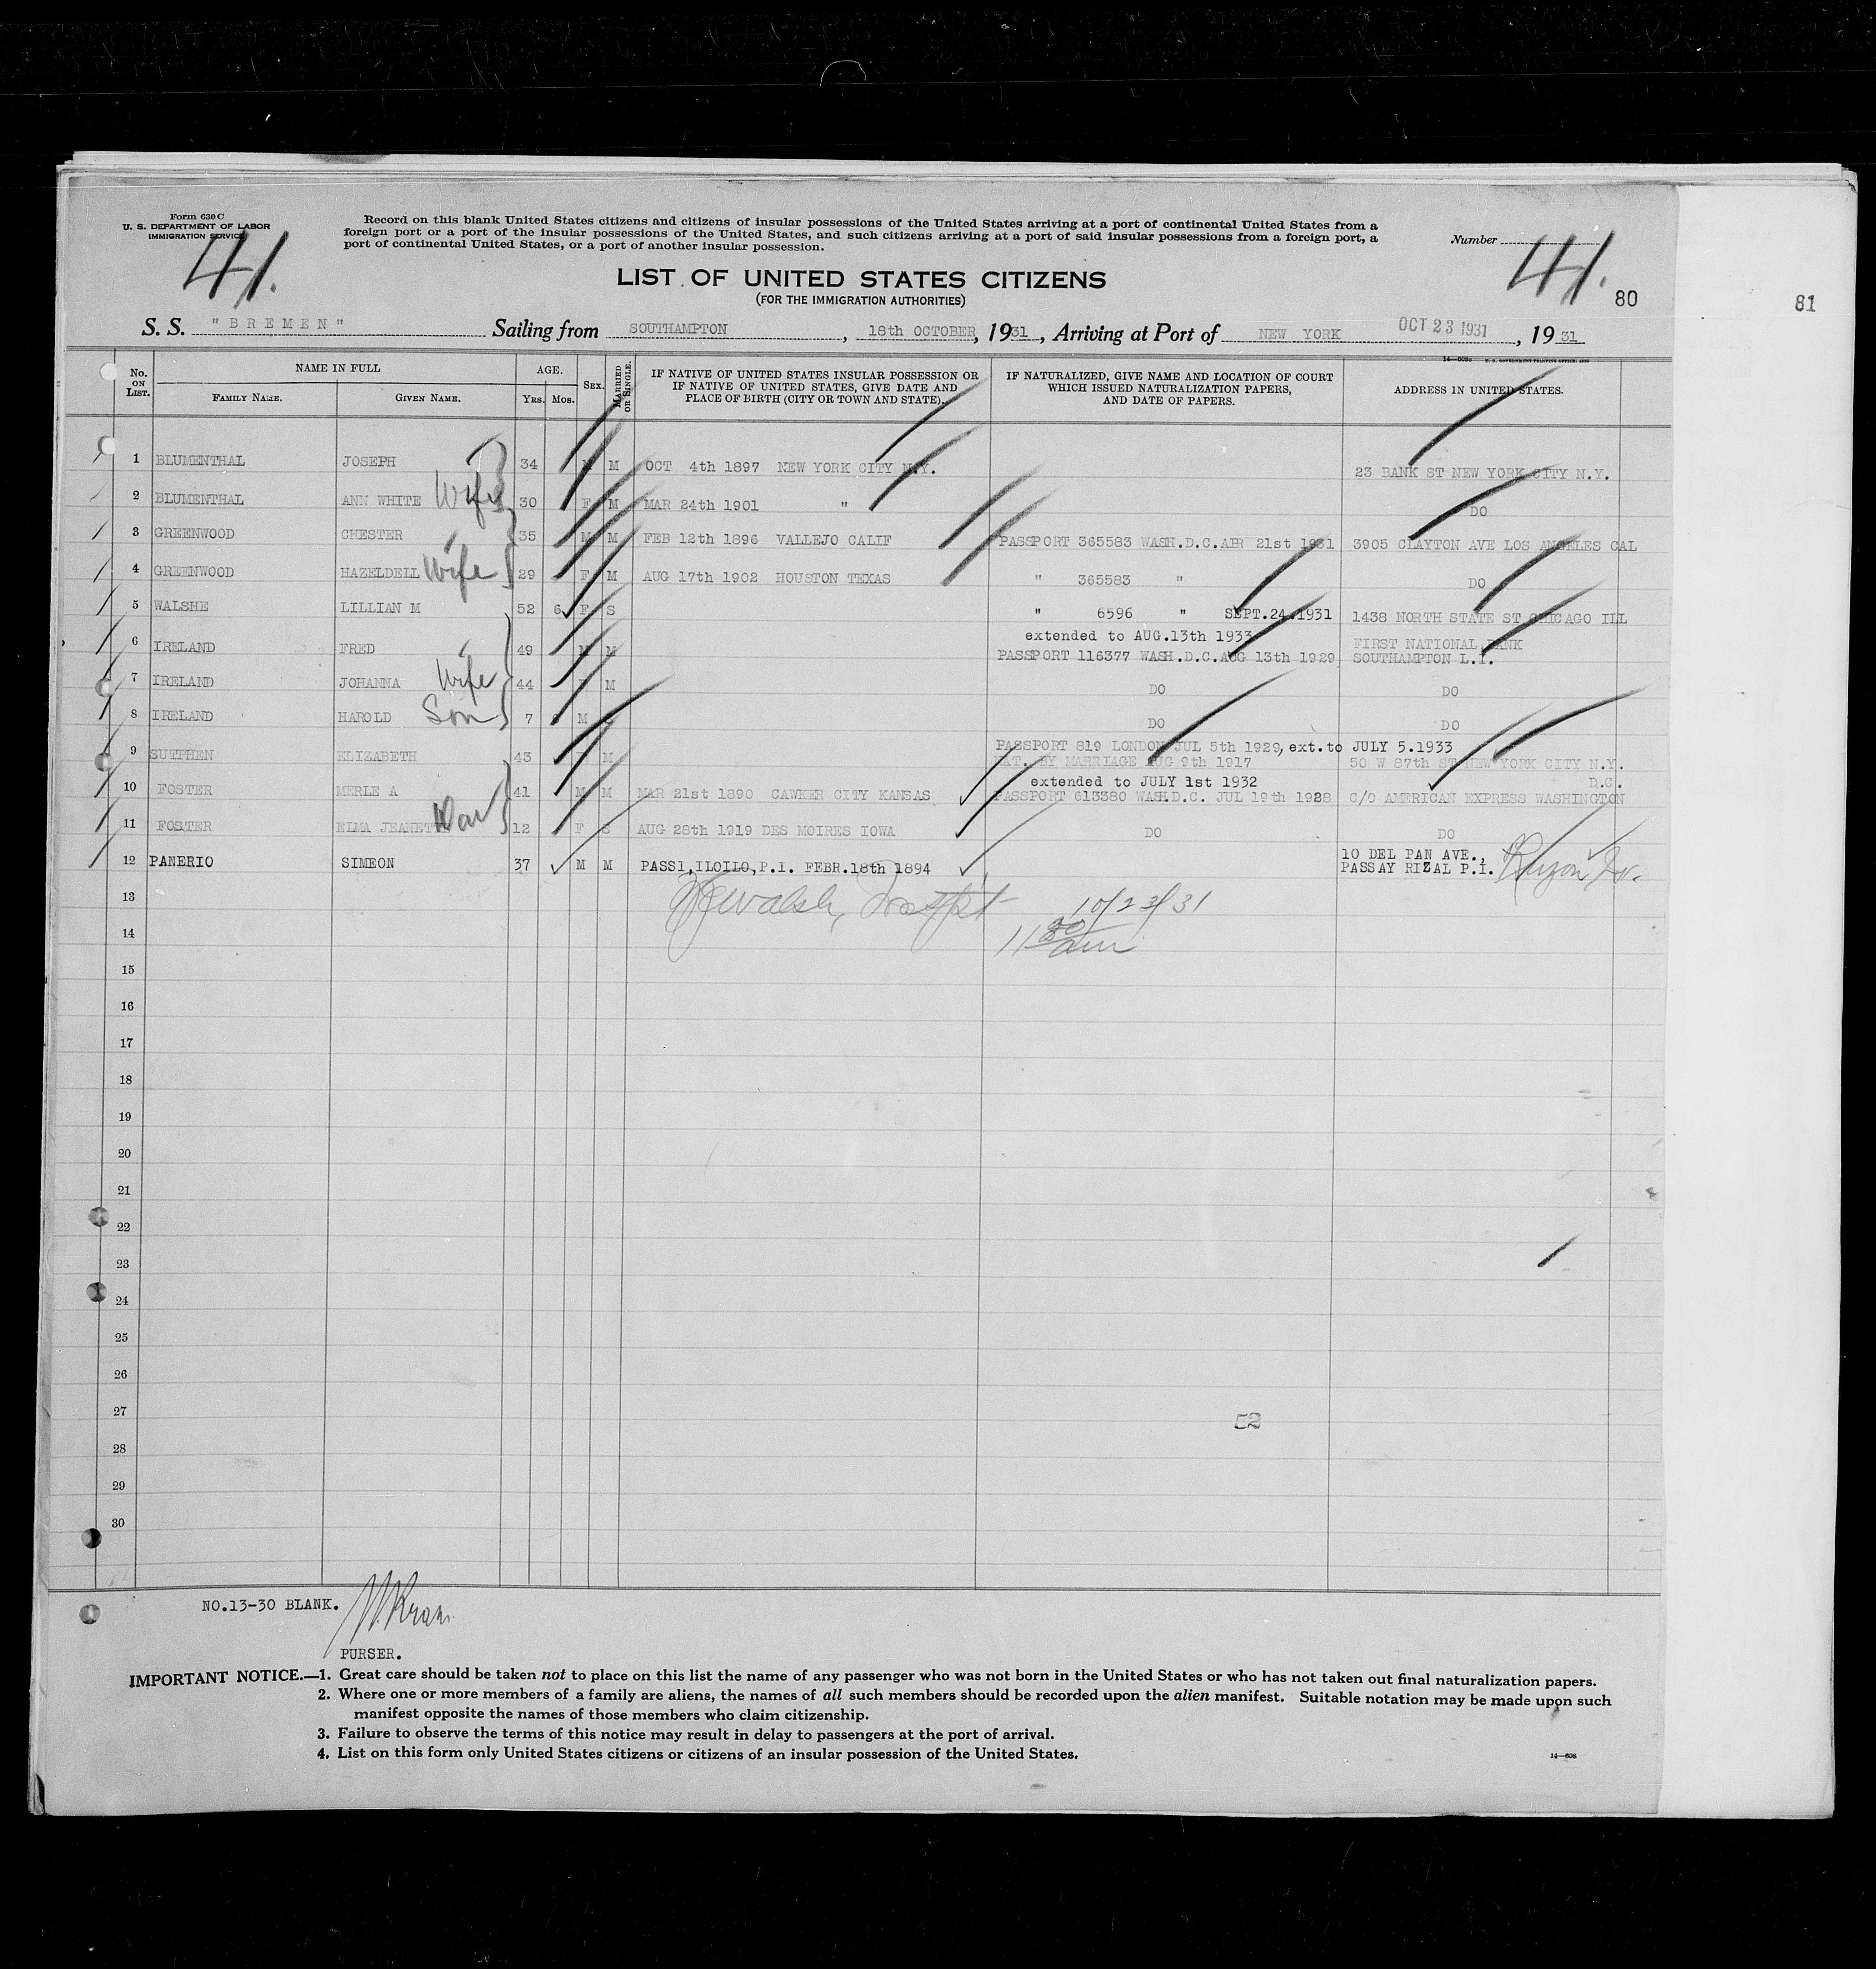 Form 630 C
U. S. DEPARTMENT OF LABOR
IMMIGRATION SERVICE
Record on this blank United States citizens and citizens of insular possessions of the United States arriving at a port of continental United States from a
foreign port or a port of the insular possessions of the United States, and such citizens arriving at a port of said insular possessions from a foreign port, a
port of continental United States, or a port of another insular possession.
Number
41.
41.
80
81
LIST OF UNITED STATES CITIZENS
(FOR THE IMMIGRATION AUTHORITIES)
S. S. "BREMEN" Sailing from SOUTHAMPTON, 18th OCTOBER, 1931, Arriving at Port of NEW YORK OCT 23 1931, 1931
No. ON LIST. NAME IN FULL FAMILY NAME. GIVEN NAME. AGE. YRS. MOS. SEX. MARRIED OR SINGLE. IF NATIVE OF UNITED STATES INSULAR POSSESSION OR IF NATIVE OF UNITED STATES, GIVE DATE AND PLACE OF BIRTH (CITY OR TOWN AND STATE). IF NATURALIZED, GIVE NAME AND LOCATION OF COURT WHICH ISSUED NATURALIZATION PAPERS, AND DATE OF PAPERS. ADDRESS IN UNITED STATES.
1 BLUMENTHAL JOSEPH 34 M M OCT 4th 1897 NEW YORK CITY N.Y. 23 BANK ST NEW YORK CITY N.Y.
2 BLUMENTHAL ANN WHITE Wife 30 F M MAR 24th 1901 " DO
3 GREENWOOD CHESTER 35 M M FEB 12th 1896 VALLEJO CALIF PASSPORT 365583 WASH.D.C.APR 21st 1931 3905 CLAYTON AVE LOS ANGELES CAL
4 GREENWOOD HAZELDELL Wife 29 F M AUG 17th 1902 HOUSTON TEXAS " 365583 " DO
5 WALSHE LILLIAN M 52 6 F S " 6596 " SEPT.24.1931 1438 NORTH STATE ST CHICAGO ILL
extended to AUG.13th 1933 FIRST NATIONAL BANK
6 IRELAND FRED 49 M M PASSPORT 116377 WASH.D.C.AUG 13th 1929 SOUTHAMPTON L.I.
7 IRELAND JOHANNA Wife 44 F M DO DO
8 IRELAND HAROLD Son 7 M DO DO
PASSPORT 819 LONDON JUL 5th 1929, ext.to JULY 5.1933
9 SUTPHEN ELIZABETH 43 M NAT. BY MARRIAGE AUG 9th 1917 50 W 87th ST NEW YORK CITY N.Y.
extended to JULY 1st 1932 D.C.
10 FOSTER MERLE A 41 M M MAR 21st 1890 CAWKER CITY KANSAS PASSPORT 613380 WASH.D.C. JUL 19th 1928 C/O AMERICAN EXPRESS WASHINGTON
11 FOSTER ELMA JEANETT Dau 12 F S AUG 28th 1919 DES MOIRES IOWA DO DO
10 DEL PAN AVE.,
12 PANERIO SIMEON 37 M M PASS1, ILOILO, P.I. FEBR.18th 1894 PASSAY RIZAL P.I.
13 Walsh, 10/23/31
14 11 30 am
15
16
17
18
19
20
21
22
23
24
25
26
27 52
28
29
30
NO.13-30 BLANK.
PURSER.
IMPORTANT NOTICE.—1. Great care should be taken not to place on this list the name of any passenger who was not born in the United States or who has not taken out final naturalization papers.
2. Where one or more members of a family are aliens, the names of all such members should be recorded upon the alien manifest. Suitable notation may be made upon such
manifest opposite the names of those members who claim citizenship.
3. Failure to observe the terms of this notice may result in delay to passengers at the port of arrival.
4. List on this form only United States citizens or citizens of an insular possession of the United States.
14—608